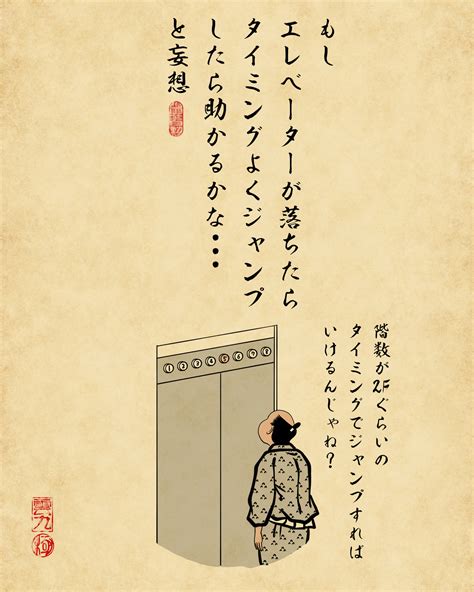 もし
エレベーターが落ちたら
タイミングよくジャンプ
したら助かるかな・・・
と妄想
階数が2Fぐらいの
タイミングでジャンプすれば
いけるんじゃね？
1 2 3 4 5 6 7 8